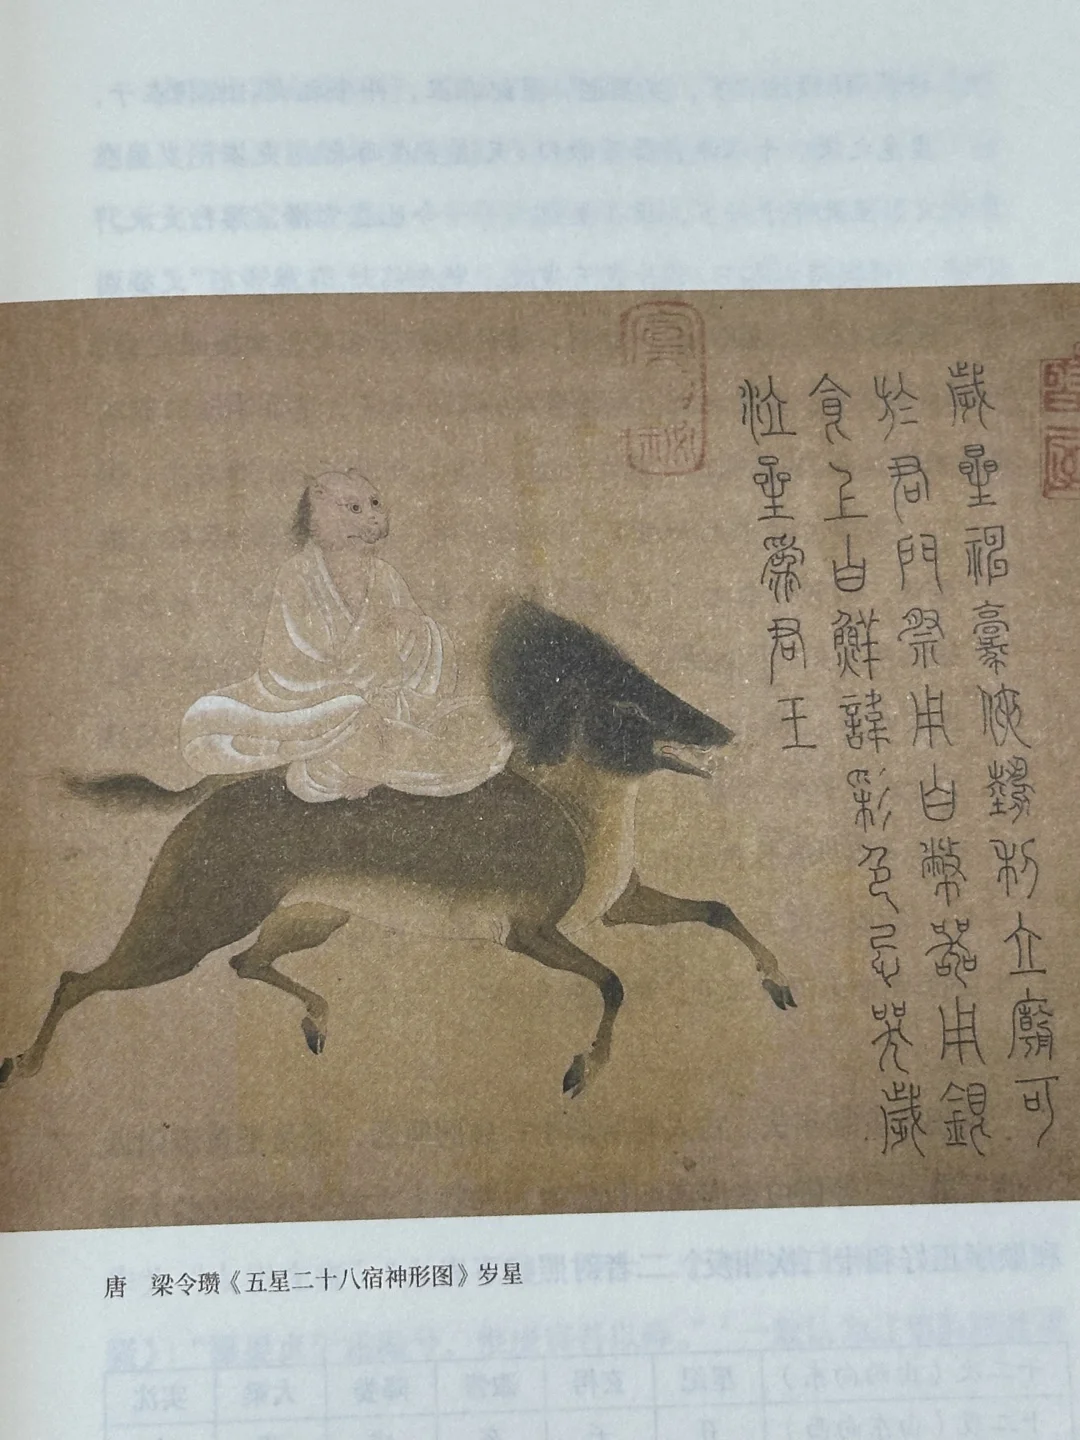 歲星神豪俠勢利立廟可
於君門祭用白幣器用銀
食上白鮮諱彩色忌哭歲
泣星爲君王
唐　梁令瓒《五星二十八宿神形图》岁星